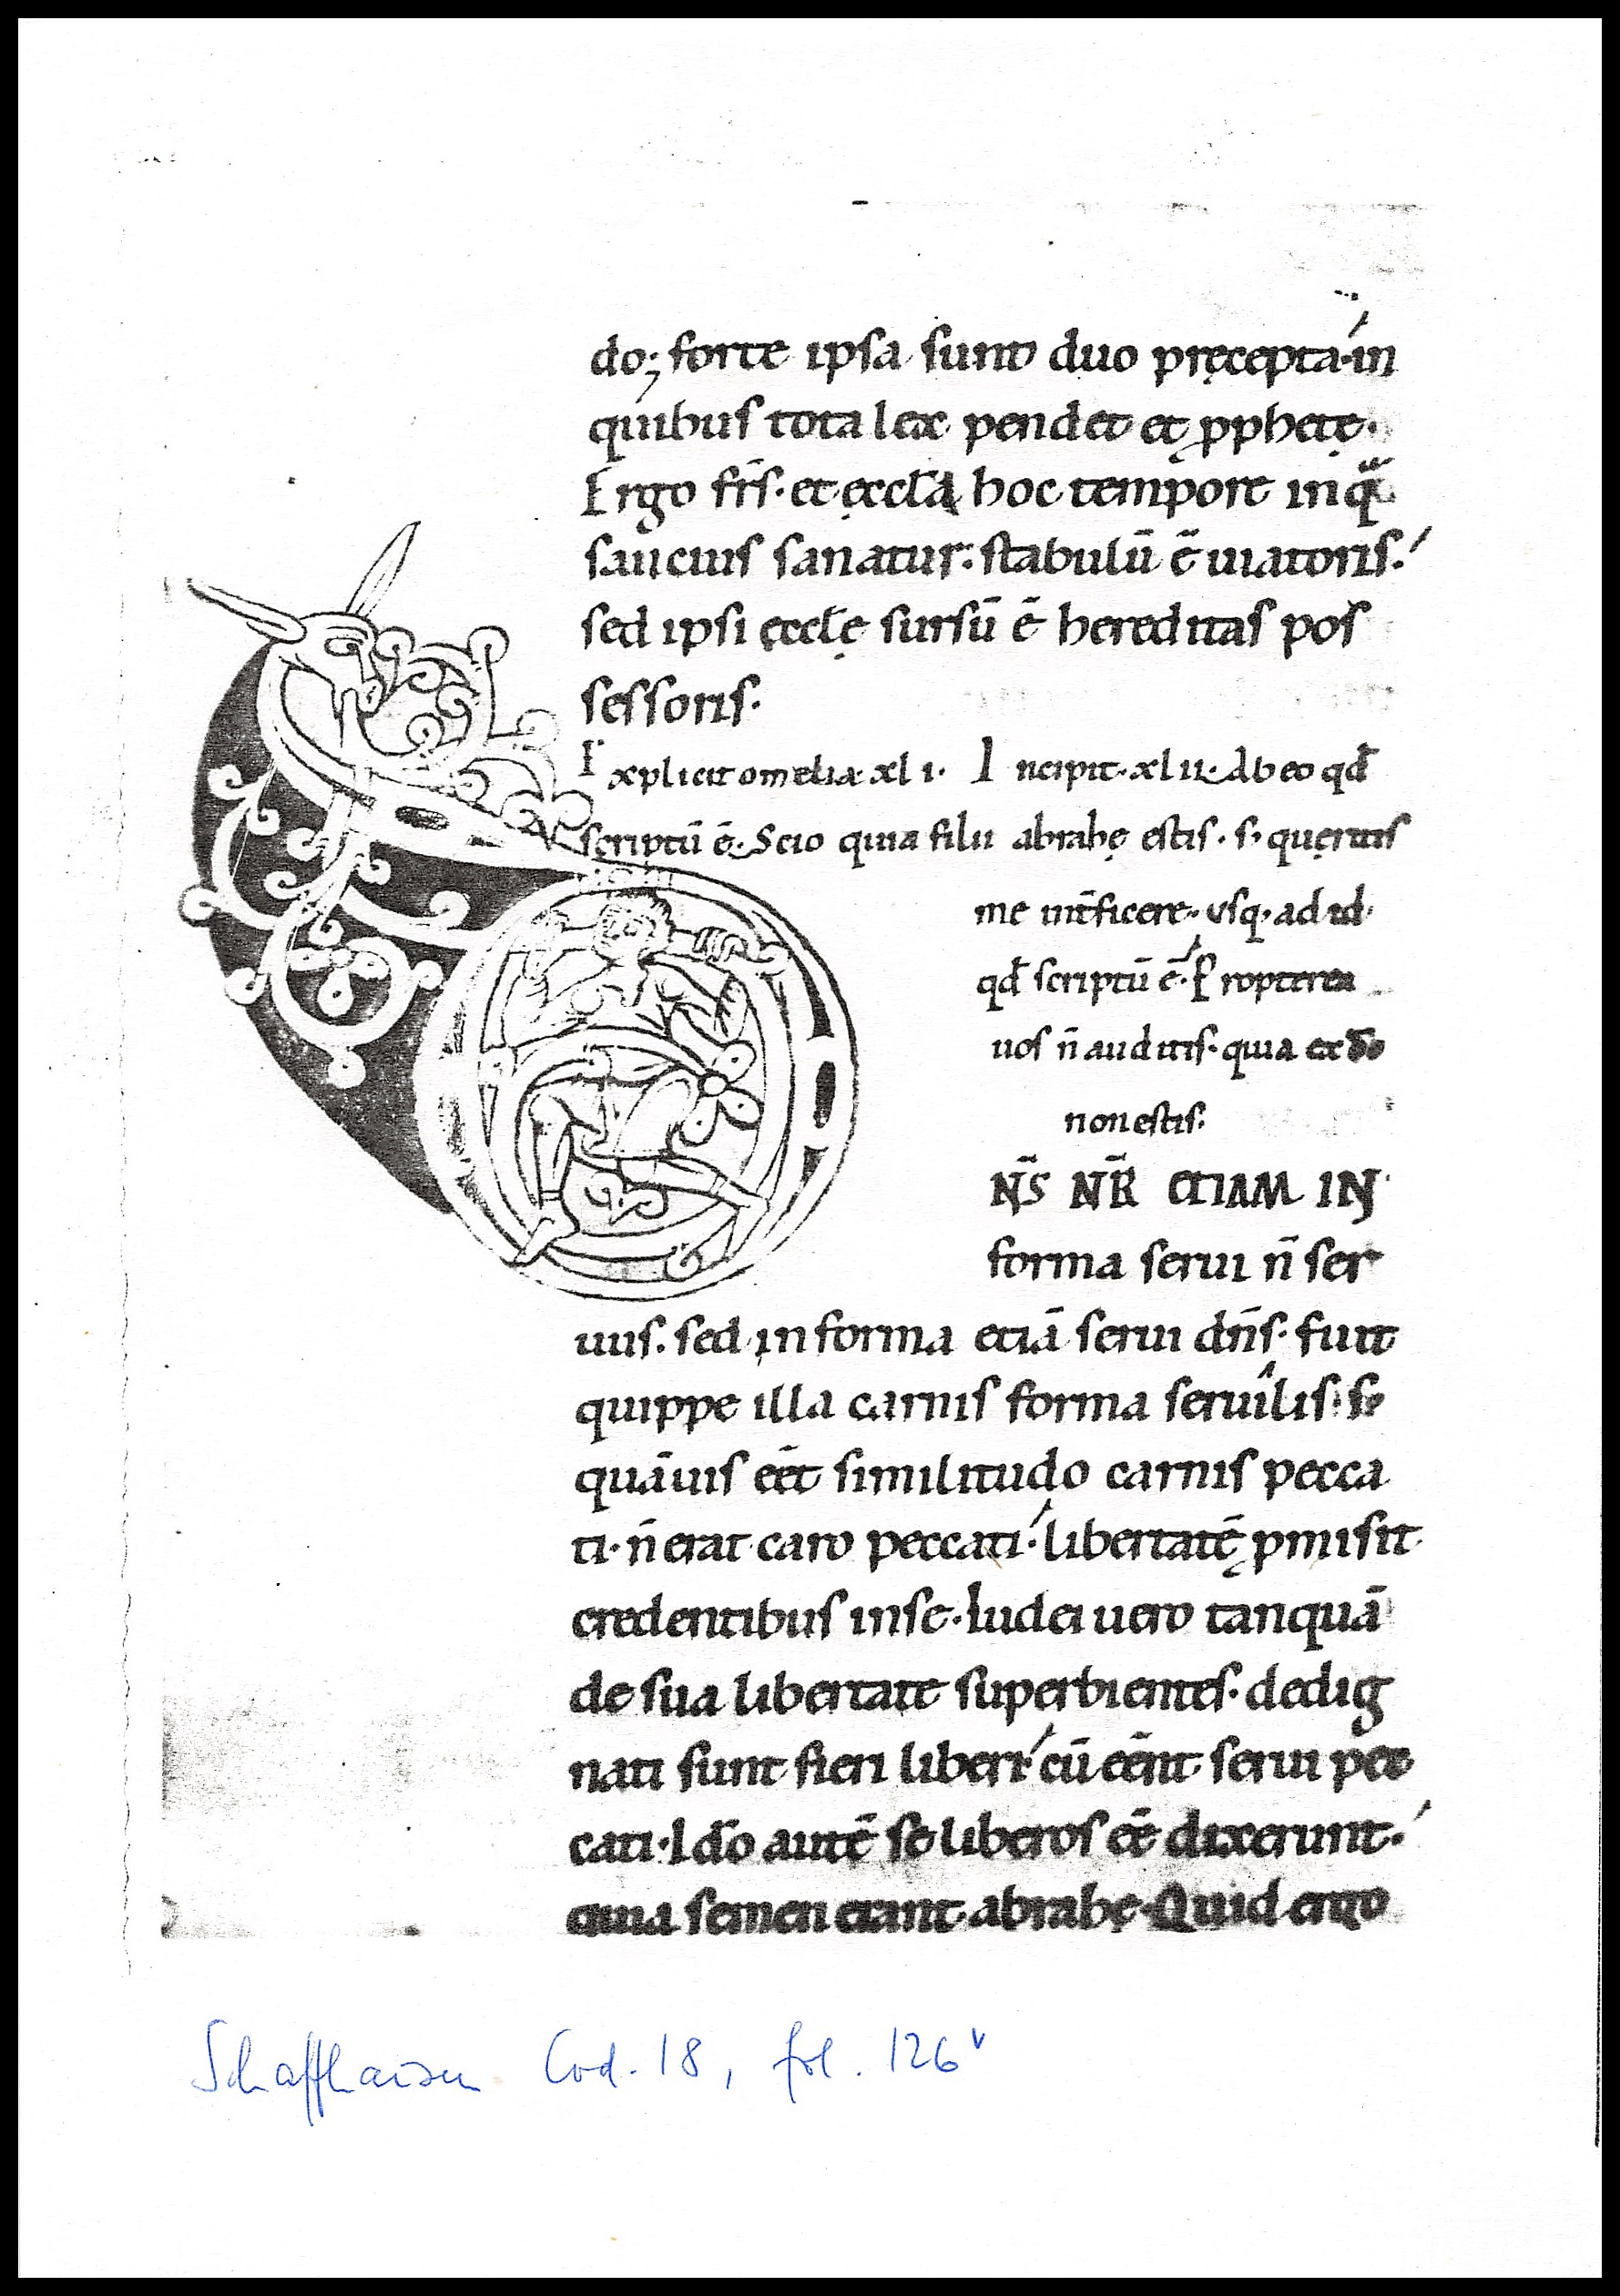 do; forte ipsa sunt duo pręcepta·in
quibus tota lex pendet et ꝓphetę·
Ergo fr̄s·et ęccl̄a hoc tempore in qͣ
saucius sanatur: stabulū ē uiatoris·
sed ipsi ęccl̄ę sursū ē hereditas pos
sessoris·
Explicit omelia xli· Incipit·xlii·Ab eo qd̄
scriptū ē·Scio quia filii abrahę estis·s; queritis
me int̄ficere·usq·ad id
qd̄ scriptū ē·Propterea
uos n̄ auditis·quia ex dō
non estis·
DN̄S NR̄ ETIAM IN
forma serui n̄ ser
uus·sed in forma etiā serui dn̄s·fuit
quippe illa carnis forma seruilis·s;
quāuis eēt similitudo carnis pecca
ti·n̄ erat caro peccati·libertatē ꝓmisit
credentibus in se·Iudei uero tanquā
de sua libertate superbientes·dedig
nati sunt fieri liberi·cū eēnt serui pec
cati·Idō autē se liberos eē dixerunt·
quia semen erant abrahę·Quid ergo
Schaffhausen Cod. 18, fol. 126ᵛ